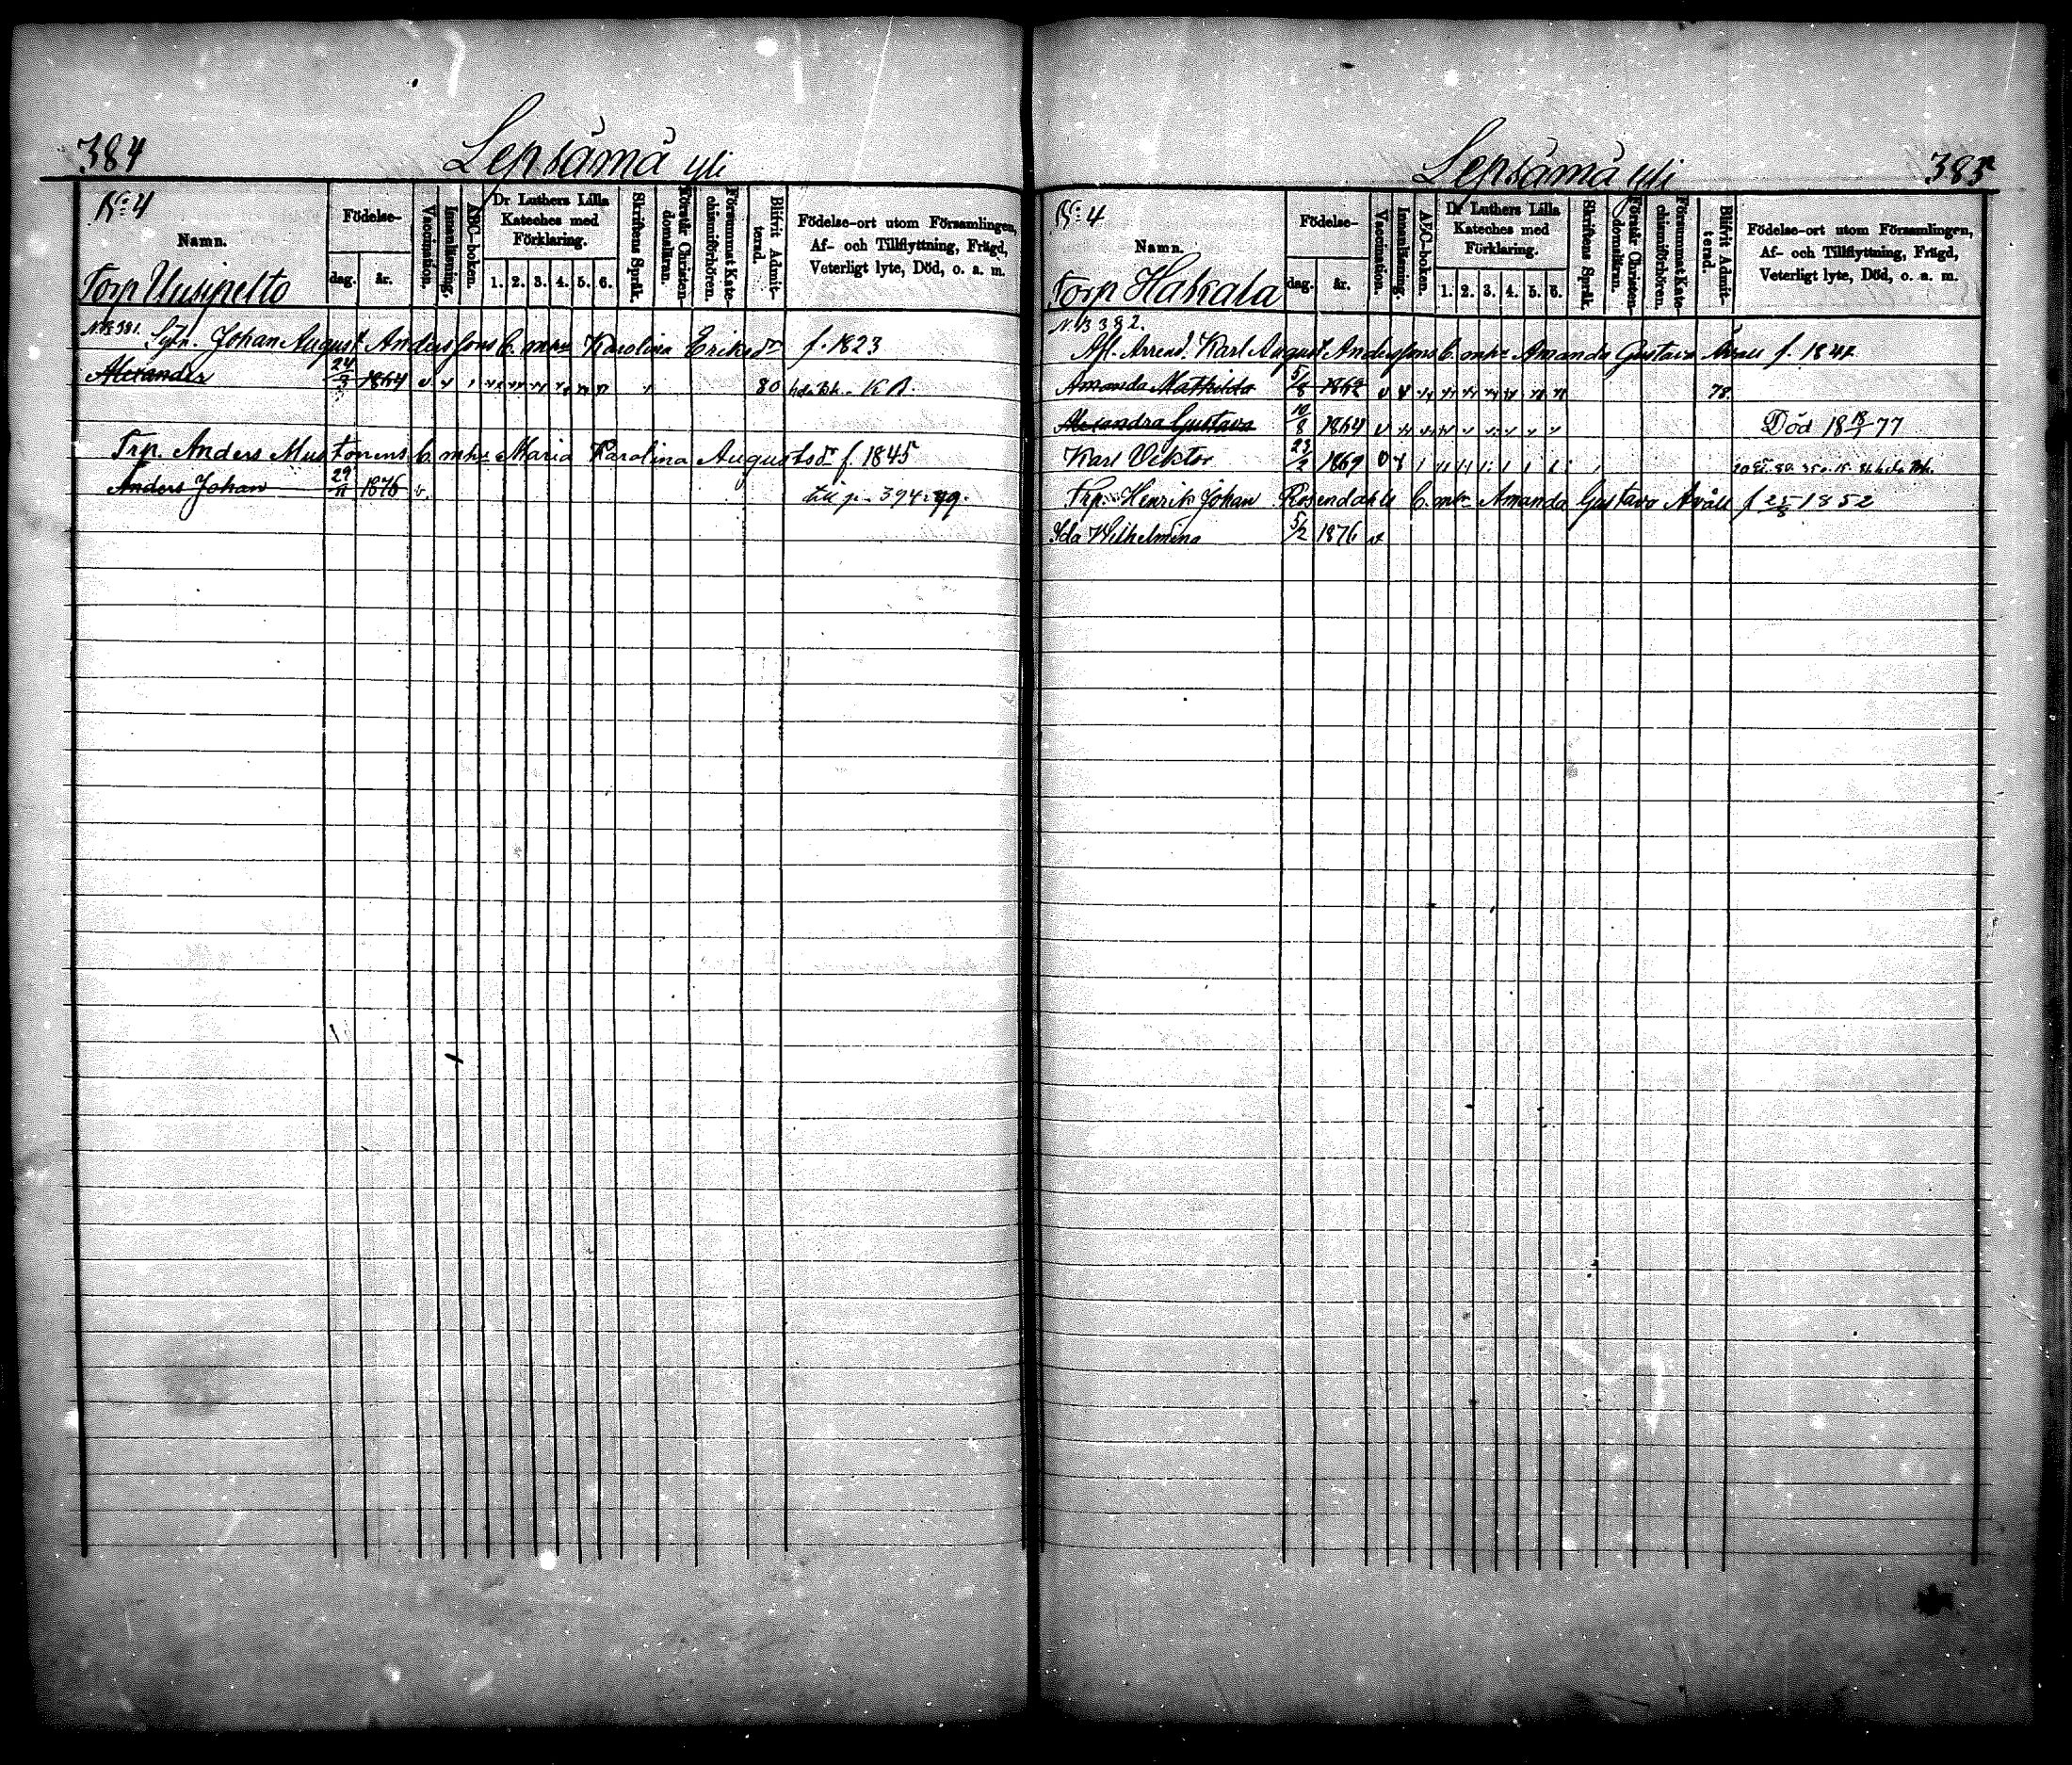 384
Lepsämä yli
No 4
Namn.
Födelse-
dag.
år.
Vaccination.
Innanläsning.
ABC-boken.
Dr Luthers Lilla
Kateches med
Förklaring.
1. 2. 3. 4. 5. 6.
Skriftens Språk.
Förstår Christen-
domsläran.
Försummat Kate-
chismiförhören.
Blifvit Admit-
terad.
Födelse-ort utom Församlingen,
Af- och Tillflyttning, Frägd,
Veterligt lyte, Död, o. a. m.
Torp Uusipelto
381. Sytn. Johan August Anderssons b. m. hu Karolina Eriksdr f. 1823
Alexander 24/3 1864 80
Trp. Anders Mustonens b. m. hu Maria Karolina Augustsdr f. 1845
Anders Johan 29/11 1876 v. till p. 394
Lepsämä yli
385
No 4
Namn.
Födelse-
dag.
år.
Vaccination.
Innanläsning.
ABC-boken.
Dr Luthers Lilla
Kateches med
Förklaring.
1. 2. 3. 4. 5. 6.
Skriftens Språk.
Förstår Christen-
domsläran.
Försummat Kate-
chismiförhören.
Blifvit Admit-
terad.
Födelse-ort utom Församlingen,
Af- och Tillflyttning, Frägd,
Veterligt lyte, Död, o. a. m.
Torp Hakala
382.
Afl. Arrend. Karl August Anderssons b. m. hu Amanda Gustava f. 1844
Amanda Mathilda 5/8 1862 78.
Alexandra Gustava 10/8 1864 Död 77
Karl Viktor 23/2 1869
Trp. Henrik Johan Rosendahls b. m. hu Amanda Gustava Avall f 25/8 1852
Ida Wilhelmina 5/2 1876 v